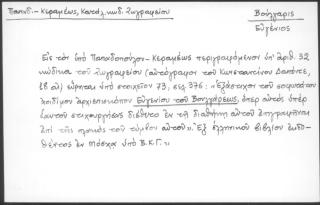 Παπαδ.-Κεραμέως, Κατάλ. κωδ. Ζωγραφείου
Βούλγαρις
Εὐγένιος
Εἰς τὸν ὑπὸ Παπαδοπούλου-Κεραμέως περιγραφόμενον ὑπ' ἀριθ. 32
κώδικα τοῦ Ζωγραφείου (αὐτόγραφον τοῦ Κωνσταντίνου Δαπόντε,
18 αἰ) εὕρηται ὑπὸ στοιχεῖον 73, σελ. 376: «Ἐξάστιχον τοῦ σοφωτάτου
ἀοιδίμου ἀρχιεπισκόπου Εὐγενίου τοῦ Βουλγάρεως, ὅπερ αὐτὸς ὑπὲρ
ἑαυτοῦ στιχουργήσας διέθετο ἐν τῇ διαθήκῃ αὐτοῦ ἐπιγραφῆναι
ἐπὶ τῆς πλακὸς τοῦ τύμβου αὐτοῦ». Ἐξ ἑλληνικοῦ βιβλίου ἐκδο-
θέντος ἐν Μόσχᾳ ὑπὸ Β.Κ.Γ.»